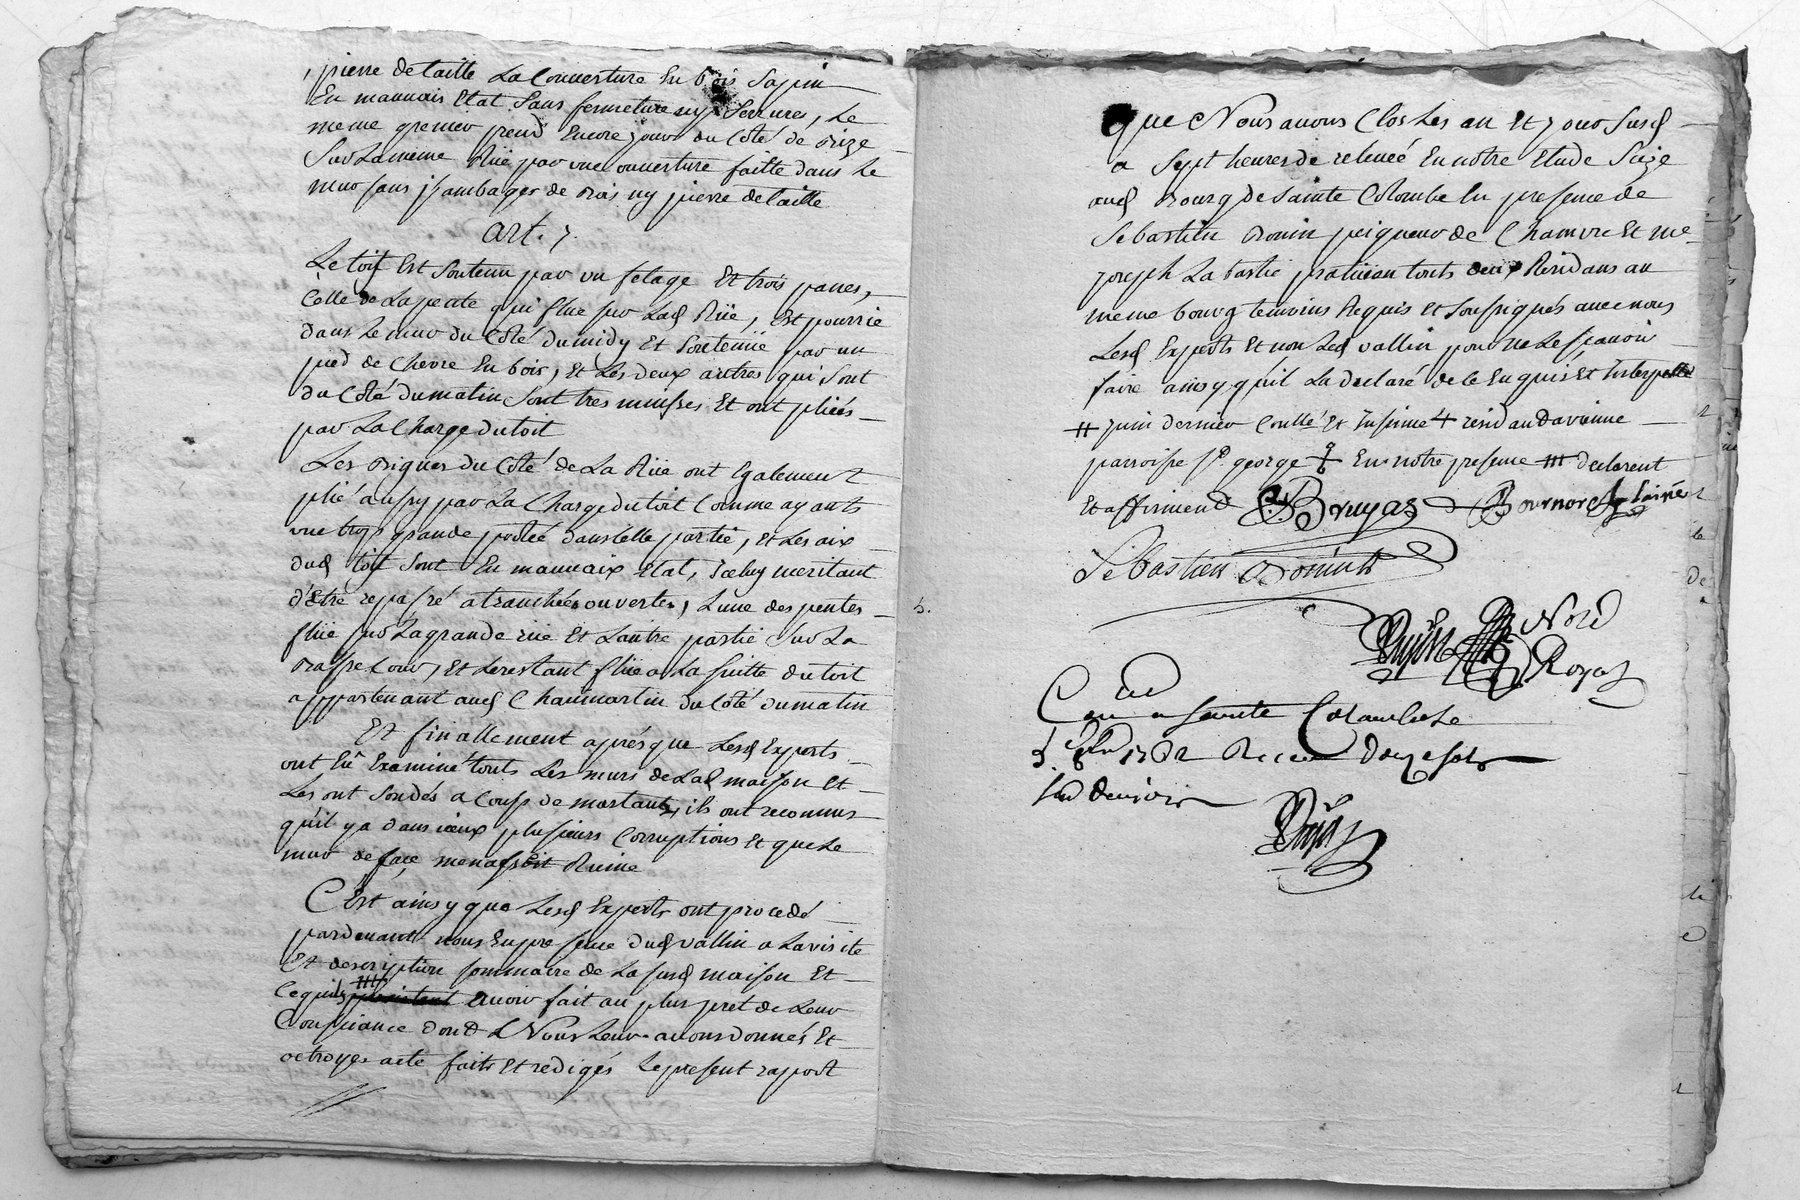 pierre de taille La Couverture En bois Sapin
En mauvais Etat Sans fermeture ny Serrures, Le
meme grenier prend Encore jour du Côté de Bize
Sur La meme Rüe par une ouverture faitte dans Le
mur sans jambages de Bois ny pierre de taille
art. 7.
Le toit Est Soutenu par un fetage Et trois panes,
Celle de La pente qui flue sur Lad Rüe, Est pourrie
dans Le mur du Côté du midy Et Soutenüe par un
pied de Chevre En bois, Et Les deux autres qui Sont
du Côté du matin Sont tres minses Et ont pliées
par La Charge du toit
Les Bigues du Côté de La Rüe ont Egalement
plié aussy par La Charge du toit Comme ayants
une trop grande portée dans Celle partie, Et Les aix
dud toit Sont En mauvaix Etat, Iceluy meritant
d'Etre repassé a tranchée ouverte, Lune des pentes
flüe sur La grande rüe Et Lautre partie Sur La
Basse Cour, Et Le restant flüe a La suitte du toit
appartenant aud Chanmartin du Côté du matin
Et finallement aprés que Lesd Experts
ont Eû Examiné touts Les murs de Lad maison Et
Les ont Sondés a Coups de martaux, ils ont reconnus
qu'il y a dans iceux plusieurs Corruptions Et que Le
mur de face, menassoit Ruine
C'Est ainsy que Lesd Experts ont procedé
pardevant nous En presence dud vallin a La visite
Et description sommaire de La susd maison Et
Ce quils avoir fait au plus pret de Leur
Consciance dont Nous Leur avons donnés Et
octroyes acte faits Et redigés Le present raport
que Nous avons Clos Les an Et jour Susd
a Sept heures de relevée En notre Etude Size
aud Bourg de Sainte Colombe En presence de
Sebastien Bonin peigneur de Chamvre Et me
joseph La bastie praticien touts deux Residans au
meme bourg temoins Requis Et Soussignés avec nous
Lesd Experts Et non Led vallin pour ne Le sçavoir
faire ainsy qu'il La declaré de Ce Enquis Et Interpellé
juin dernier Et residan a vienne
parroisse st george En notre presence declarent
Et affirment Bruyas Bournor Lainé
Sebastien Bonin
Nord
Royal
Con a sainte Colombe Le
5. 1782 Receu douze sols
Six deniers